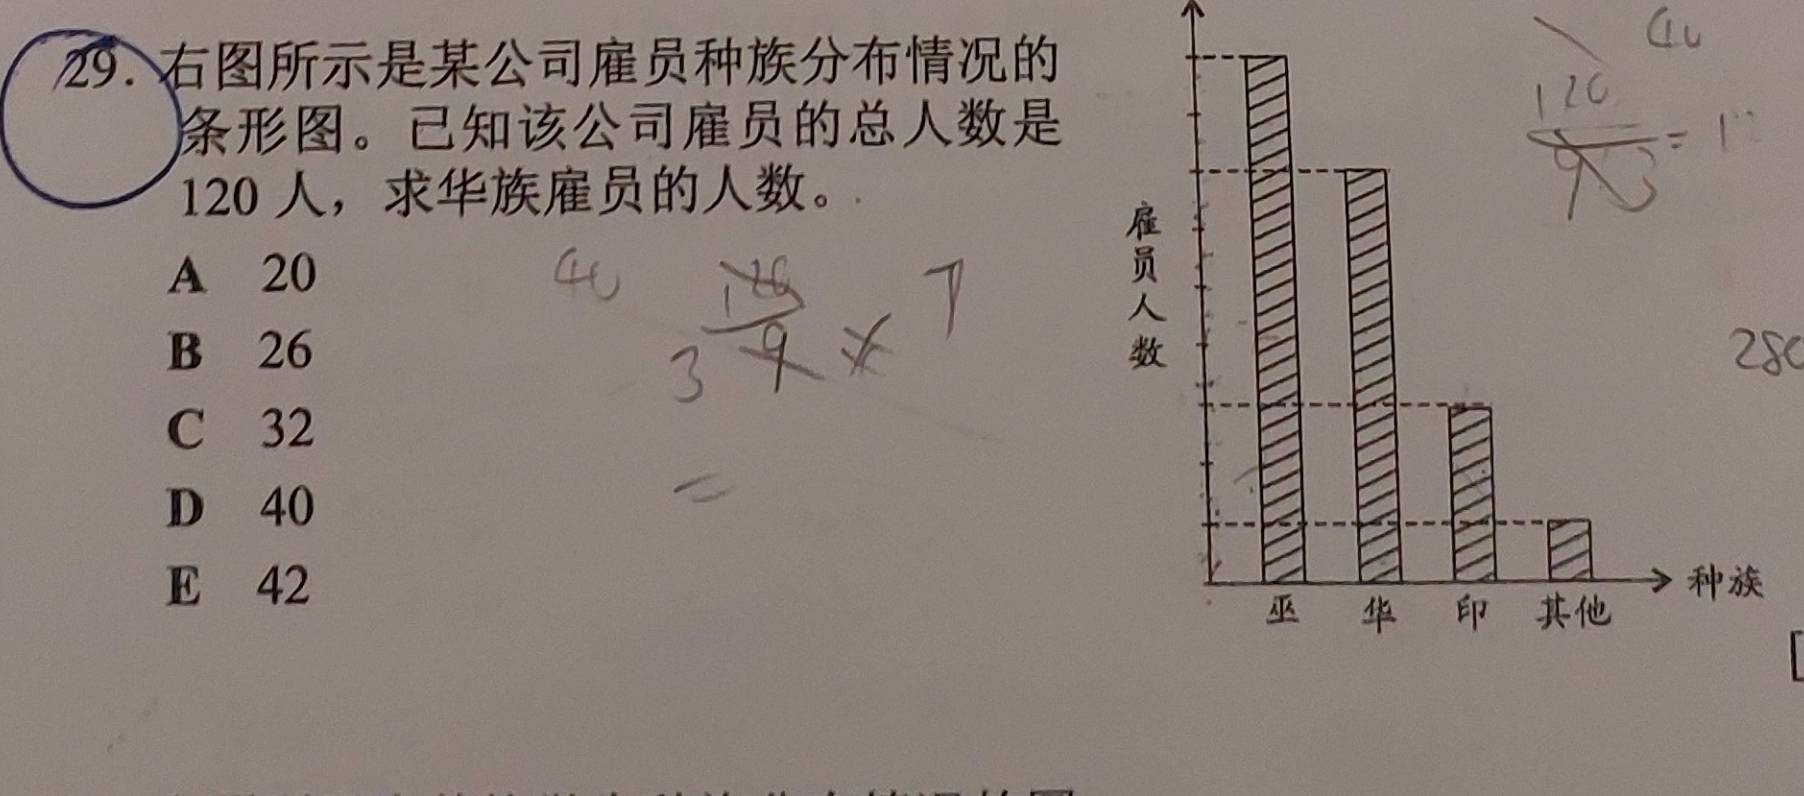 29. 右图所示是某公司雇员种族分布情况的
条形图。已知该公司雇员的总人数是
120 人，求华族雇员的人数。
A 20
B 26
C 32
D 40
E 42
40
120
3 9 × 7
=
雇员人数
巫 华 印 其他
种族
40
120
9 3 = 1
280
[